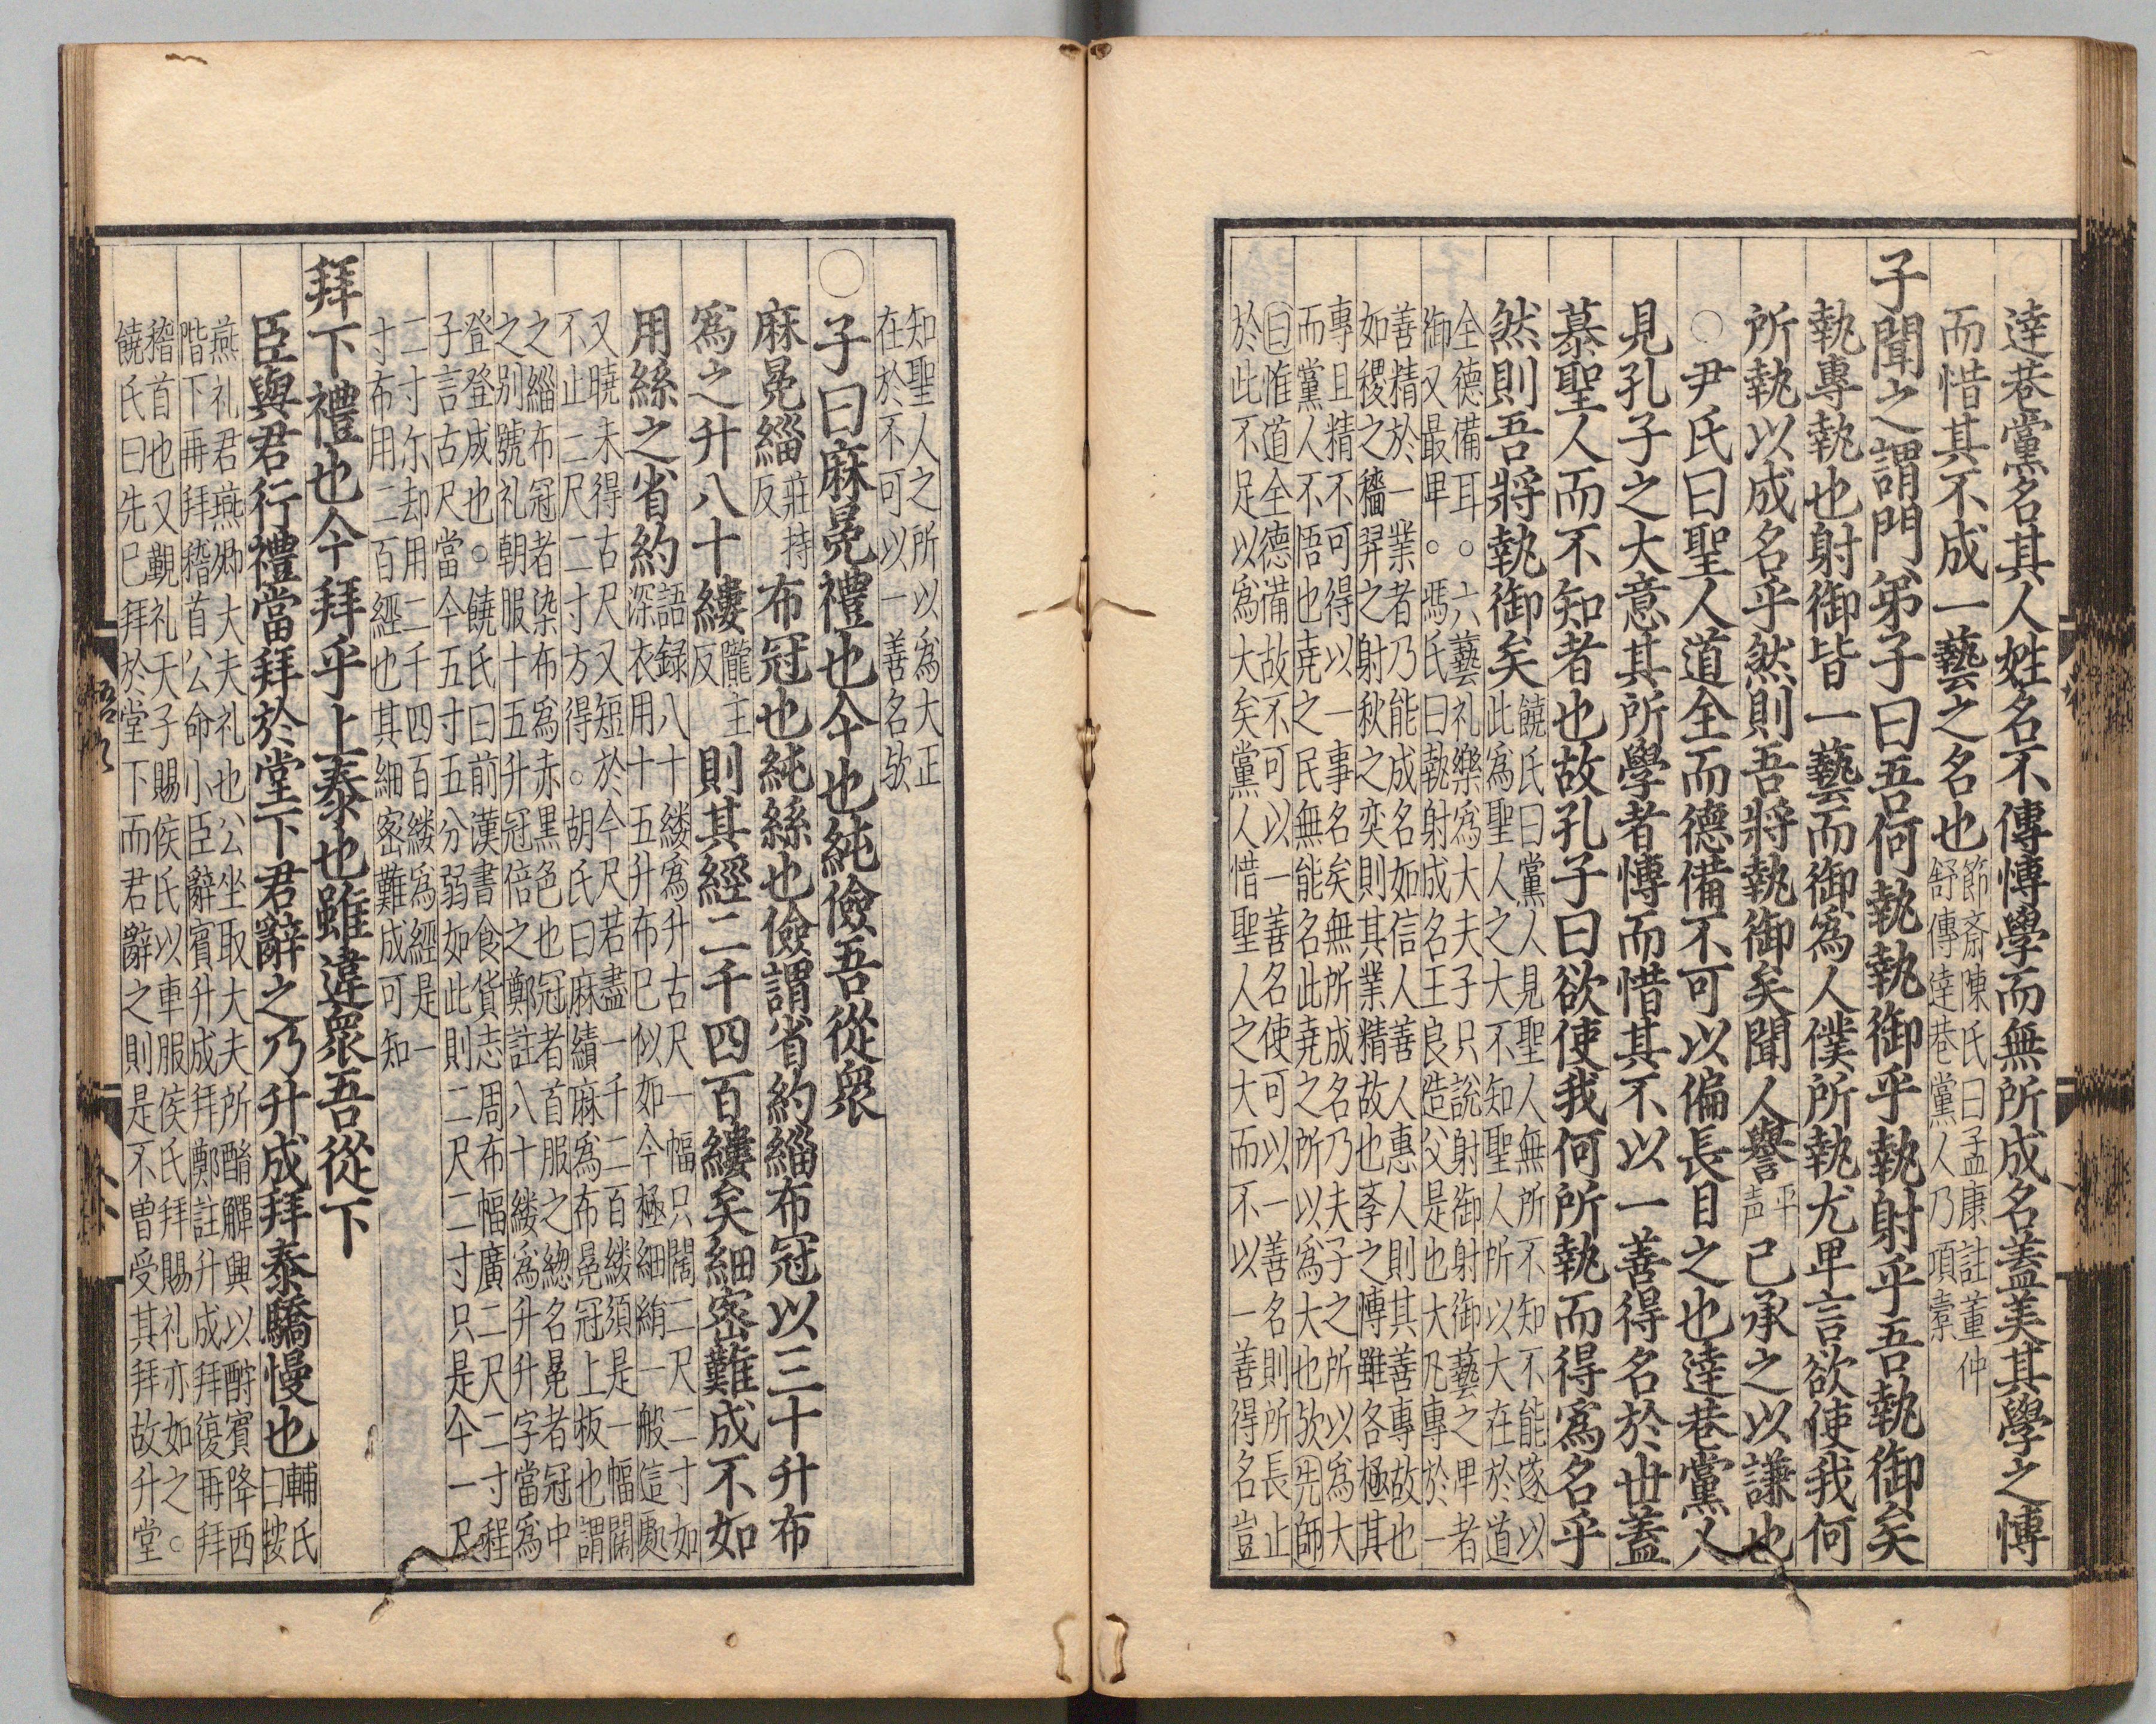 達巷黨名其人姓名不傳愽學而無所成名盖美其學之愽
而惜其不成一藝之名也節斎陳氏曰孟康註董仲
舒傳達巷黨人乃項槖
子聞之謂門弟子曰吾何執執御乎執射乎吾執御矣
執專執也射御皆一藝而御爲人僕所執尤卑言欲使我何
所執以成名乎然則吾將執御矣聞人譽平
声己承之以謙也
○尹氏曰聖人道全而德備不可以偏長目之也達巷黨人
見孔子之大意其所學者愽而惜其不以一善得名於世盖
慕聖人而不知者也故孔子曰欲使我何所執而得爲名乎
然則吾將執御矣饒氏曰黨人見聖人無所不知不能遂以
此爲聖人之大不知聖人所以大在於道
全德備耳。六藝礼樂爲大夫子只說射御射御藝之卑者
御又最卑。馮氏曰執射成名王良造父是也大凡專於一
善精於一業者乃能成名如信人善人惠人則其善專故也
如稷之穡羿之射秋之奕則其業精故也季之愽雖各極其
專且精不可得以一事名矣無所成名乃夫子之所以爲大
而黨人不悟也尭之民無能名此尭之所以爲大也欤先師
曰惟道全德備故不可以一善名使可以一善名則所長止
於此不足以爲大矣黨人惜聖人之大而不以一善得名豈
知聖人之所以爲大正
在於不可以一善名欤
○子曰麻冕禮也今也純儉吾從衆
麻冕緇莊持
反布冠也純絲也儉謂省約緇布冠以三十升布
爲之升八十縷隴主
反則其經二千四百縷矣細宻難成不如
用絲之省約語録八十縷爲升古尺一幅只闊二尺二寸如
深衣用十五升布已似如今極細絹一般這處
又曉未得古尺又短於今尺若盡一千二百縷須是一幅闊
不止二尺二寸方得。胡氏曰麻績麻爲布冕冠上板也謂
之緇布冠者染布爲赤黒色也冠者首服之緫名冕者冠中
之别號礼朝服十五升冠倍之鄭註八十縷爲升升字當爲
登登成也。饒氏曰前漢書食貨志周布幅廣二尺二寸程
子言古尺當今五寸五分弱如此則二尺二寸只是今一尺
二寸尓却用二千四百縷爲經是一
寸布用二百經也其細宻難成可知
拜下禮也今拜乎上泰也雖違衆吾從下
臣與君行禮當拜於堂下君辭之乃升成拜泰驕慢也輔氏
曰按
燕礼君燕卿大夫礼也公坐取大夫所酳觶興以酬賓降西
階下再拜稽首公命小臣辭賓升成拜鄭註升成拜復再拜
稽首也又覲礼天子賜侯氏以車服侯氏拜賜礼亦如之。
饒氏曰先已拜於堂下而君辭之則是不曽受其拜故升堂